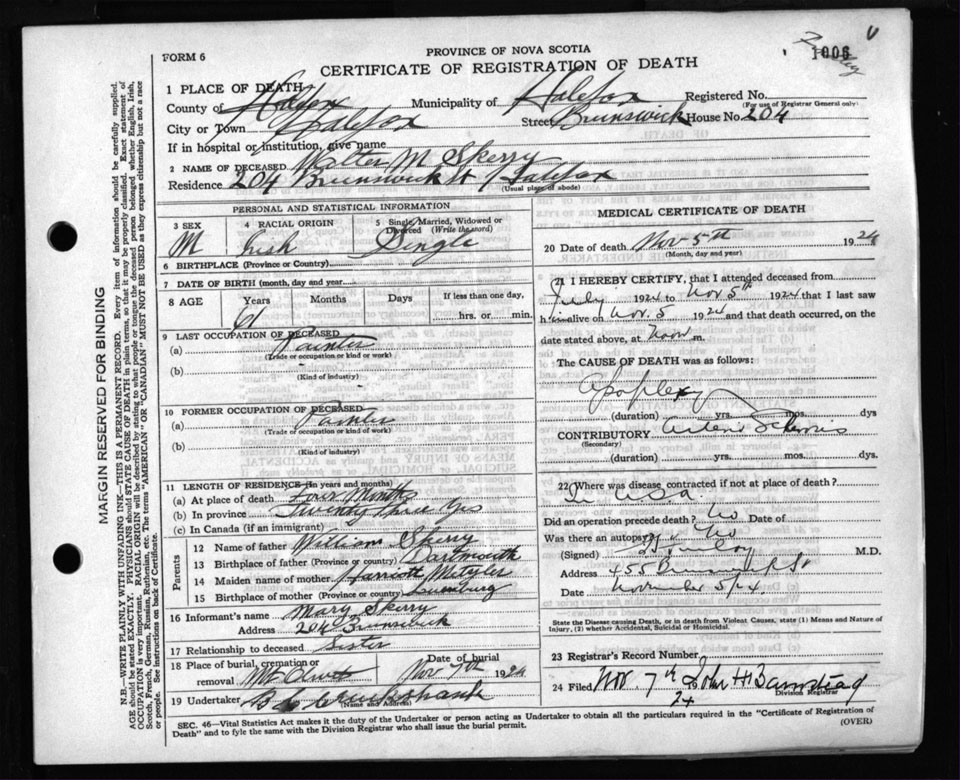 FORM 6
PROVINCE OF NOVA SCOTIA
1006
CERTIFICATE OF REGISTRATION OF DEATH
1 PLACE OF DEATH
County of Halifax Municipality of Halifax Registered No.
(For use of Registrar General only)
City or Town Halifax Street Brunswick House No. 204
If in hospital or institution, give name
2 NAME OF DECEASED Walter M Skerry
Residence 204 Brunswick St Halifax
(Usual place of abode)
PERSONAL AND STATISTICAL INFORMATION
3 SEX 4 RACIAL ORIGIN 5 Single, Married, Widowed or Divorced (Write the word)
M Irish Single
6 BIRTHPLACE (Province or Country)
7 DATE OF BIRTH (month, day and year)
8 AGE Years Months Days If less than one day,
61 hrs. or min.
9 LAST OCCUPATION OF DECEASED
(a) Painter
(Trade or occupation or kind or work)
(b)
(Kind of industry)
10 FORMER OCCUPATION OF DECEASED
(a) Painter
(Trade or occupation or kind of work)
(b)
(Kind of industry)
11 LENGTH OF RESIDENCE (in years and months)
(a) At place of death Four Months
(b) In province Twenty three yrs
(c) In Canada (if an immigrant)
Parents
12 Name of father William Skerry
13 Birthplace of father (Province or country) Dartmouth
14 Maiden name of mother Harriett
15 Birthplace of mother (Province or country) Lunenburg
16 Informant's name Mary Skerry
Address 204 Brunswick
17 Relationship to deceased Sister
18 Place of burial, cremation or removal Mt Olivet Date of burial Nov 7th 1924
19 Undertaker Cruikshank
(Name and Address)
MEDICAL CERTIFICATE OF DEATH
20 Date of death Nov 5th 1924
(Month, day and year)
21 I HEREBY CERTIFY, that I attended deceased from
July 1924 to Nov 5th 1924 that I last saw
h alive on Nov. 5 1924 and that death occurred, on the
date stated above, at noon m.
The CAUSE OF DEATH was as follows:
Apoplexy
(duration) yrs. mos. dys
CONTRIBUTORY
(Secondary)
(duration) yrs. mos. dys.
22 Where was disease contracted if not at place of death?
In U.S.A.
Did an operation precede death? No Date of
Was there an autopsy? No
(Signed) M.D.
Address 455 Brunswick St
Date November 5/24
State the Disease causing Death, or in death from Violent Causes, state (1) Means and Nature of Injury, (2) whether Accidental, Suicidal or Homicidal.
23 Registrar's Record Number
24 Filed Nov. 7th 24 John H Barnstead
Division Registrar
SEC. 46—Vital Statistics Act makes it the duty of the Undertaker or person acting as Undertaker to obtain all the particulars required in the "Certificate of Registration of
Death" and to fyle the same with the Division Registrar who shall issue the burial permit.
(OVER)
MARGIN RESERVED FOR BINDING
N.B.—WRITE PLAINLY WITH UNFADING INK—THIS IS A PERMANENT RECORD. Every item of information should be carefully supplied.
AGE should be stated EXACTLY. PHYSICIANS should STATE CAUSE OF DEATH in plain terms, so that it may be properly classified. Exact statement of
OCCUPATION is very important. RACIAL ORIGIN will be described by stating to what people or tongue the deceased person belonged whether English, Irish,
Scotch, French, German, Russian, Ruthenian, etc. The terms "AMERICAN" or "CANADIAN" MUST NOT BE USED as they express citizenship but not a race
or people. See instructions on back of Certificate.